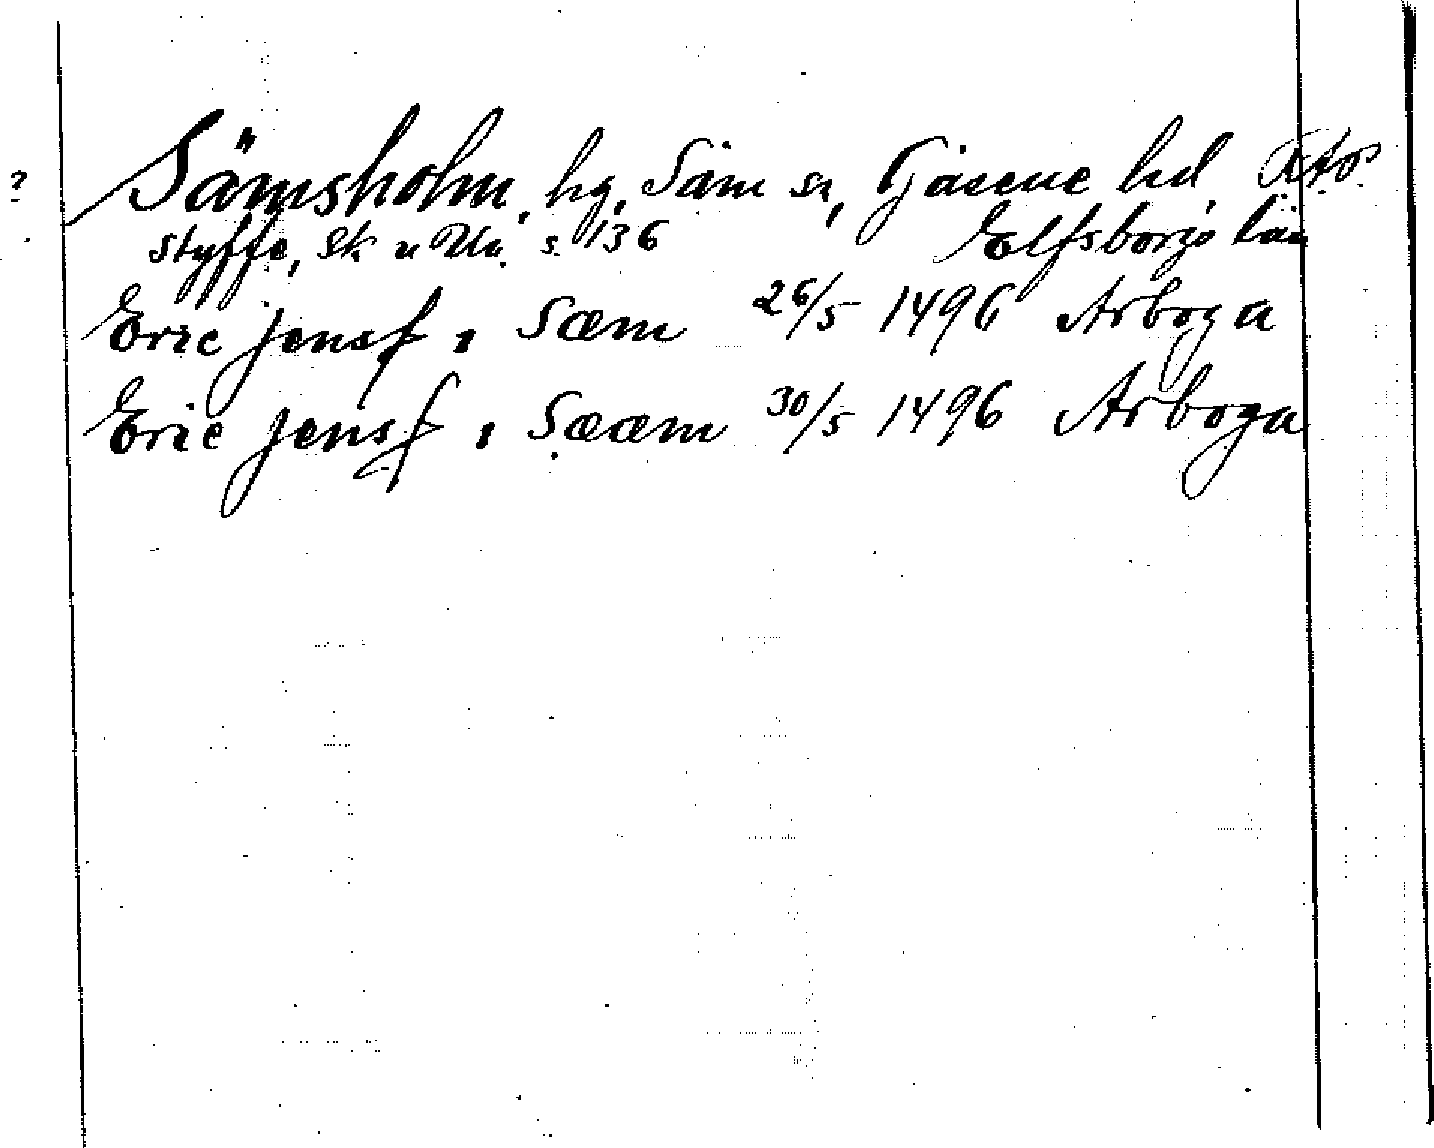 ? Sämsholm, hg, Säm sn, Gäsene hd
Styffe, Sk u Un. s. 136 Elfsborgs län
Eric Jensß i Sæm 26/5 1496 Arboga
Eric Jensß i Sææm 30/5 1496 Arboga